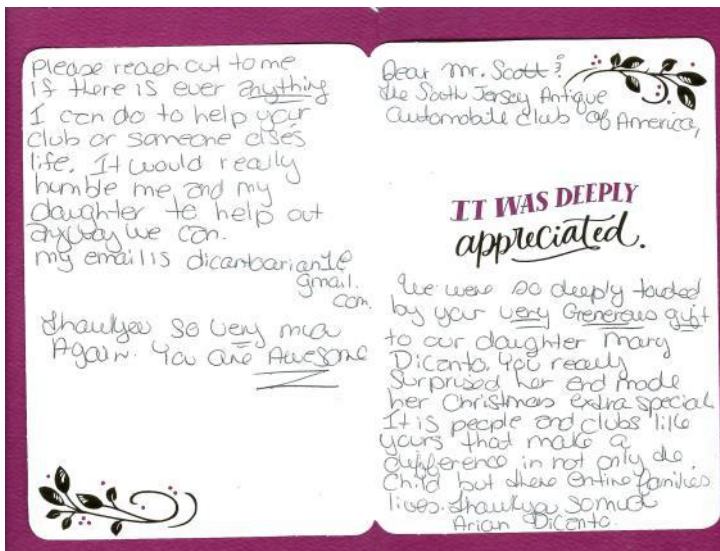 Please reach out to me
if there is ever anything
I can do to help your
club or someone elses
life. It would really
humble me and my
daughter to help out
anyway we can.
my email is dicantoarian1@
gmail.
com.
Thankyou so very much
Again. You are Awesome
Dear Mr. Scott &
the South Jersey Antique
Automobile Club of America,
IT WAS DEEPLY
appreciated.
We were so deeply touched
by your very Generous gift
to our daughter Mary
DiCanto. You really
Surprised her and made
her Christmas extra special
It is people and clubs like
yours that make a
difference in not only the
Child but there entire families
lives. Thankyou so much
Arian DiCanto.